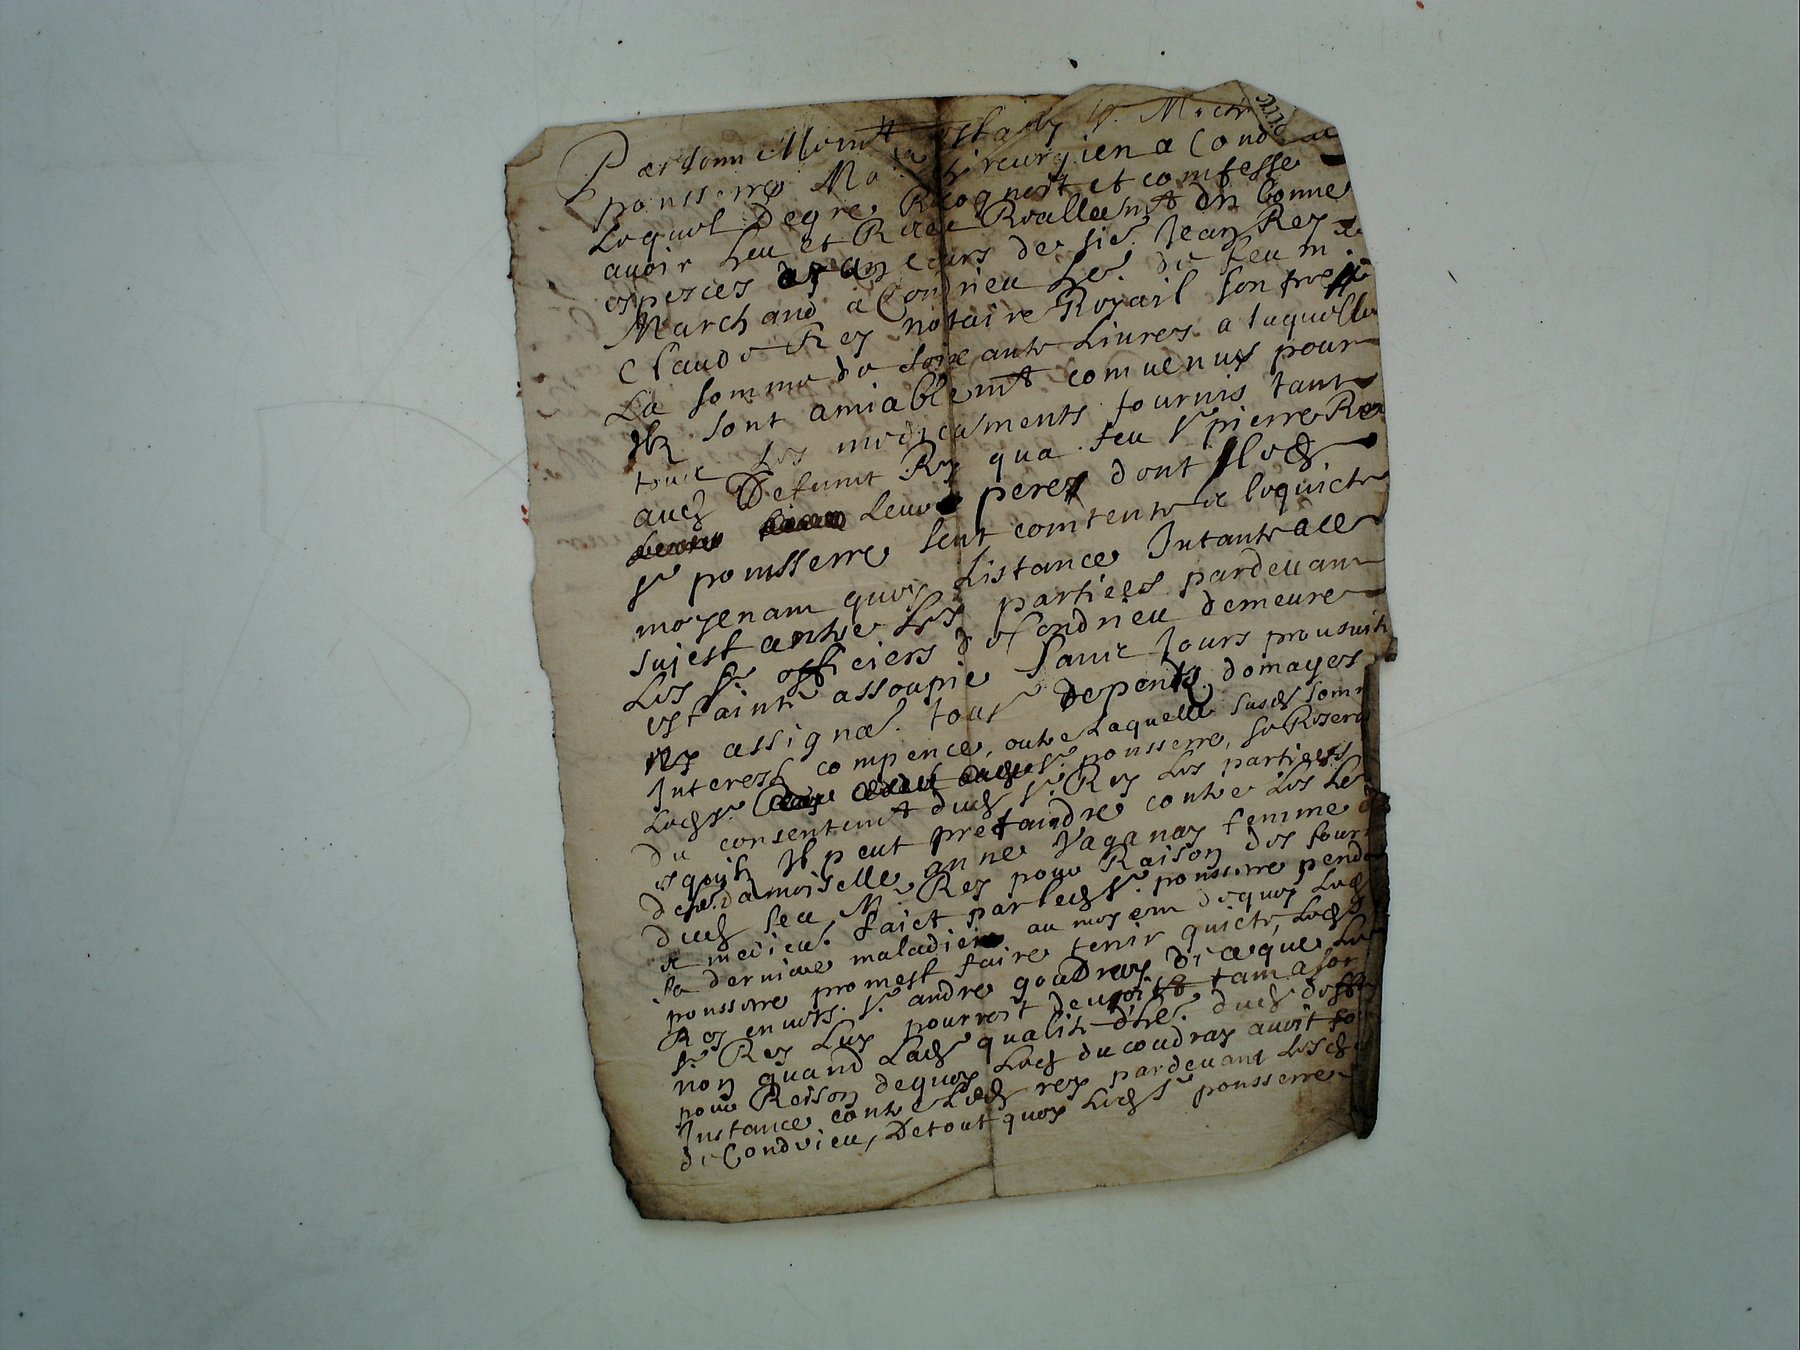 Personnellemt estably Sr. Mich
pousserre Mo. chireurgien a Cond
Lequel de gre Recognoit et comfesse
avoir heu et Receu Reallemt En bonne
espesces de sr. Jean Rey
Marchand a Condrieu he. de feu m.
Claude Rey notaire Royail son frere
La somme de soixante Livres a laquelle
Ilz sont amiablemt comvenus pour
tout Les medicaments fournis tant
aud Defunt Rey qua feu Sr pierre Rey
Leur pere dont led
Sr pousserre sent comtente & lequicte
moyenam quoy Listance Intante a ce
sujest entre Les parties pardevant
Les Srs officiers de Condrieu demeure
estainte assoupie sans Jours pousuite
ny assigna. tous depents domages
Interestz compence, outre Laquelle susd somme
Led Sr. pousserre, se Reserve
du consentemt dud Sr Rey Les parties
& quil Il peut pretandre contre Les he
de damoiselle anne Vaganay femme d
dud feu Mr Rey pour Raison des fourn
& medica. faict par led Sr. pousserre pendant
sa derniere maladie au moyem dequoy Led
pousserre promest faire tenir quicte, Led
Rey envers Sr andre goudray de ce que Led
Sr Rey Luy pourroit devoir tam a son
nom quand Lad qualite dhe. dud deff
pour Raison dequoy Led du coudray avoit
Instance contre Led rey pardevant Lesd
de Condrieu, De tout quoy Led Sr pousserre